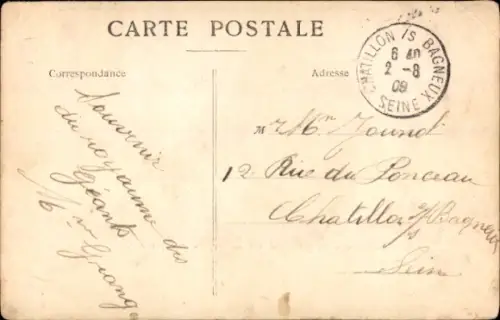 CARTE POSTALE
CHATILLON /S BAGNEUX
6 40
2 - 8
09
SEINE
Correspondance
Adresse
Souvenir
du royaume des
Géants
M
M Mr
12 Rue du Ponceau
Chatillon s/s Bagneux
Seine